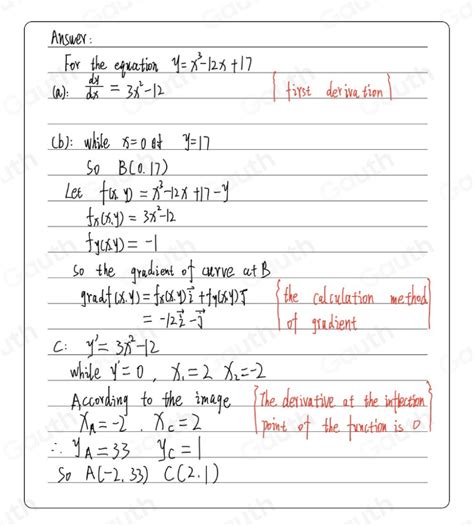 Answer:
For the equation y=x³-12x+17
(a): dy/dx = 3x²-12 first derivation
(b): while x=0 at y=17
So B(0.17)
Let f(x.y)=x³-12x+17-y
fx(x.y)=3x²-12
fy(x.y)=-1
so the gradient of curve at B
gradf(x.y)=fx(x.y)i⃗+fy(x.y)j⃗ the calculation method
=-12i⃗-j⃗ of gradient
C: y'=3x²-12
while y'=0, x₁=2 x₂=-2
According to the image The derivative at the inflection
xA=-2. xC=2 point of the function is 0
∴ yA=33 yC=1
So A(-2,33) C(2.1)
Gauth